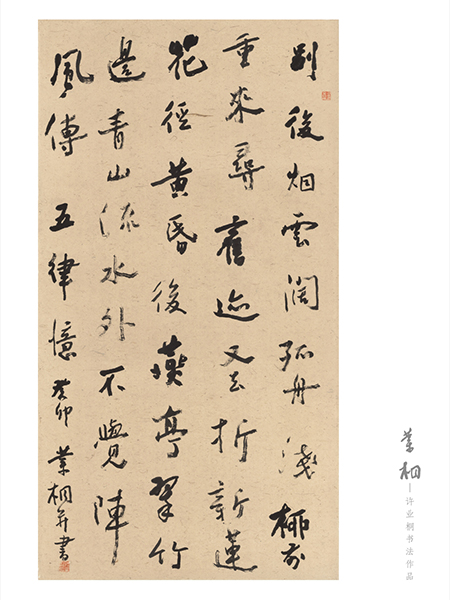 别後烟雲闊孤舟淺柳前
重來尋舊迹又去折新蓮
花徑黄昏後蘭亭翠竹
邊青山流水外不覺陣
風傳 五律 憶 癸卯 業桐并書
業桐—许业桐书法作品